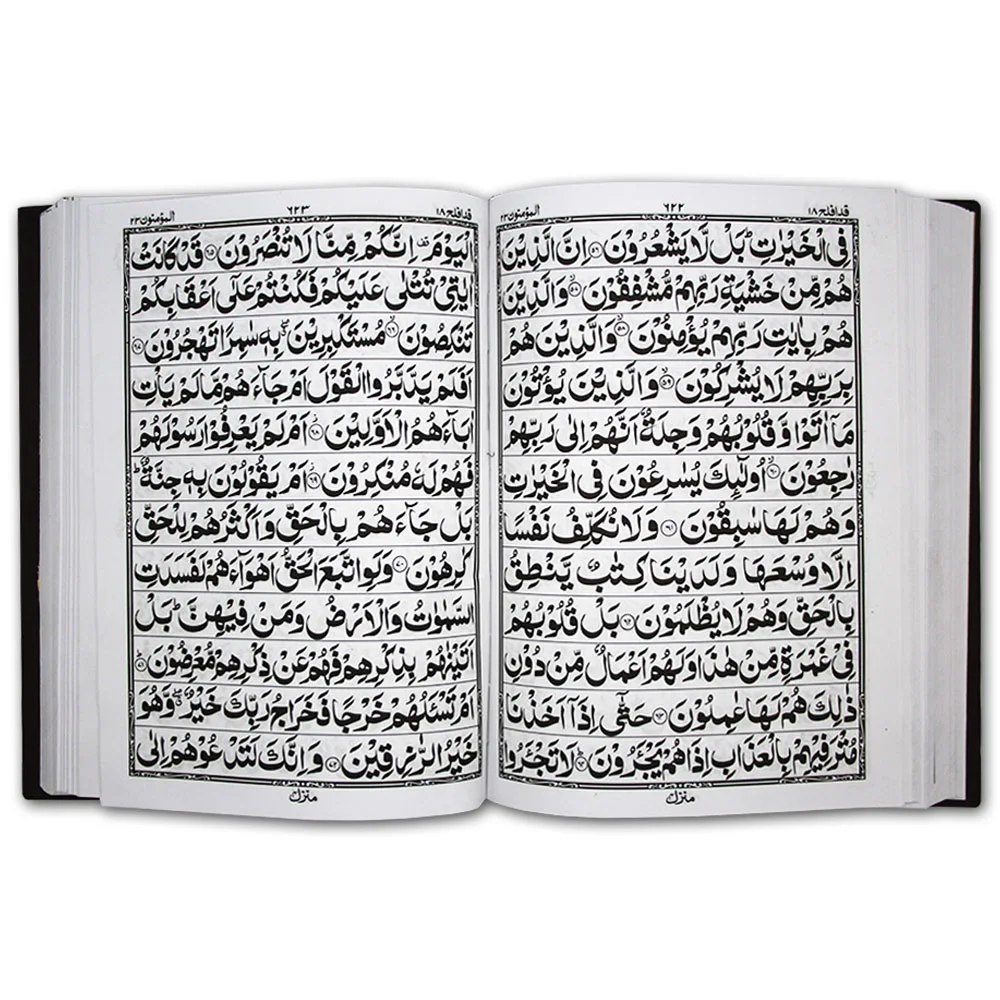 قد افلح ١٨
٦٢٢
المؤمنون ٢٣
فِی الْخَیْرٰتِ ؕ بَلْ لَّا یَشْعُرُوْنَ ﴿۵۶﴾ اِنَّ الَّذِیْنَ
هُمْ مِّنْ خَشْیَةِ رَبِّهِمْ مُّشْفِقُوْنَ ﴿۵۷﴾ وَالَّذِیْنَ
هُمْ بِاٰیٰتِ رَبِّهِمْ یُؤْمِنُوْنَ ﴿۵۸﴾ وَالَّذِیْنَ هُمْ
بِرَبِّهِمْ لَا یُشْرِكُوْنَ ﴿۵۹﴾ وَالَّذِیْنَ یُؤْتُوْنَ
مَاۤ اٰتَوْا وَّ قُلُوْبُهُمْ وَجِلَةٌ اَنَّهُمْ اِلٰی رَبِّهِمْ
رٰجِعُوْنَ ﴿۶۰﴾ اُولٰٓئِكَ یُسٰرِعُوْنَ فِی الْخَیْرٰتِ
وَهُمْ لَهَا سٰبِقُوْنَ ﴿۶۱﴾ وَلَا نُكَلِّفُ نَفْسًا
اِلَّا وُسْعَهَا وَلَدَیْنَا كِتٰبٌ یَّنْطِقُ
بِالْحَقِّ وَهُمْ لَا یُظْلَمُوْنَ ﴿۶۲﴾ بَلْ قُلُوْبُهُمْ
فِیْ غَمْرَةٍ مِّنْ هٰذَا وَلَهُمْ اَعْمَالٌ مِّنْ دُوْنِ
ذٰلِكَ هُمْ لَهَا عٰمِلُوْنَ ﴿۶۳﴾ حَتّٰۤی اِذَاۤ اَخَذْنَا
مُتْرَفِیْهِمْ بِالْعَذَابِ اِذَا هُمْ یَجْـَٔرُوْنَ ﴿۶۴﴾ لَا تَجْـَٔرُوا
منزل ٤
٦٢٣
قد افلح ١٨
المؤمنون ٢٣
الْیَوْمَ اِنَّكُمْ مِّنَّا لَا تُنْصَرُوْنَ ﴿۶۵﴾ قَدْ كَانَتْ
اٰیٰتِیْ تُتْلٰی عَلَیْكُمْ فَكُنْتُمْ عَلٰۤی اَعْقَابِكُمْ
تَنْكِصُوْنَ ﴿۶۶﴾ مُسْتَكْبِرِیْنَ بِهٖ سٰمِرًا تَهْجُرُوْنَ ﴿۶۷﴾
اَفَلَمْ یَدَّبَّرُوا الْقَوْلَ اَمْ جَآءَهُمْ مَّا لَمْ یَاْتِ
اٰبَآءَهُمُ الْاَوَّلِیْنَ ﴿۶۸﴾ اَمْ لَمْ یَعْرِفُوْا رَسُوْلَهُمْ
فَهُمْ لَهٗ مُنْكِرُوْنَ ﴿۶۹﴾ اَمْ یَقُوْلُوْنَ بِهٖ جِنَّةٌ ؕ
بَلْ جَآءَهُمْ بِالْحَقِّ وَاَكْثَرُهُمْ لِلْحَقِّ
كٰرِهُوْنَ ﴿۷۰﴾ وَلَوِ اتَّبَعَ الْحَقُّ اَهْوَآءَهُمْ لَفَسَدَتِ
السَّمٰوٰتُ وَالْاَرْضُ وَمَنْ فِیْهِنَّ ؕ بَلْ
اَتَیْنٰهُمْ بِذِكْرِهِمْ فَهُمْ عَنْ ذِكْرِهِمْ مُّعْرِضُوْنَ ﴿۷۱﴾
اَمْ تَسْـَٔلُهُمْ خَرْجًا فَخَرَاجُ رَبِّكَ خَیْرٌ وَّهُوَ
خَیْرُ الرّٰزِقِیْنَ ﴿۷۲﴾ وَاِنَّكَ لَتَدْعُوْهُمْ اِلٰی
منزل ٤